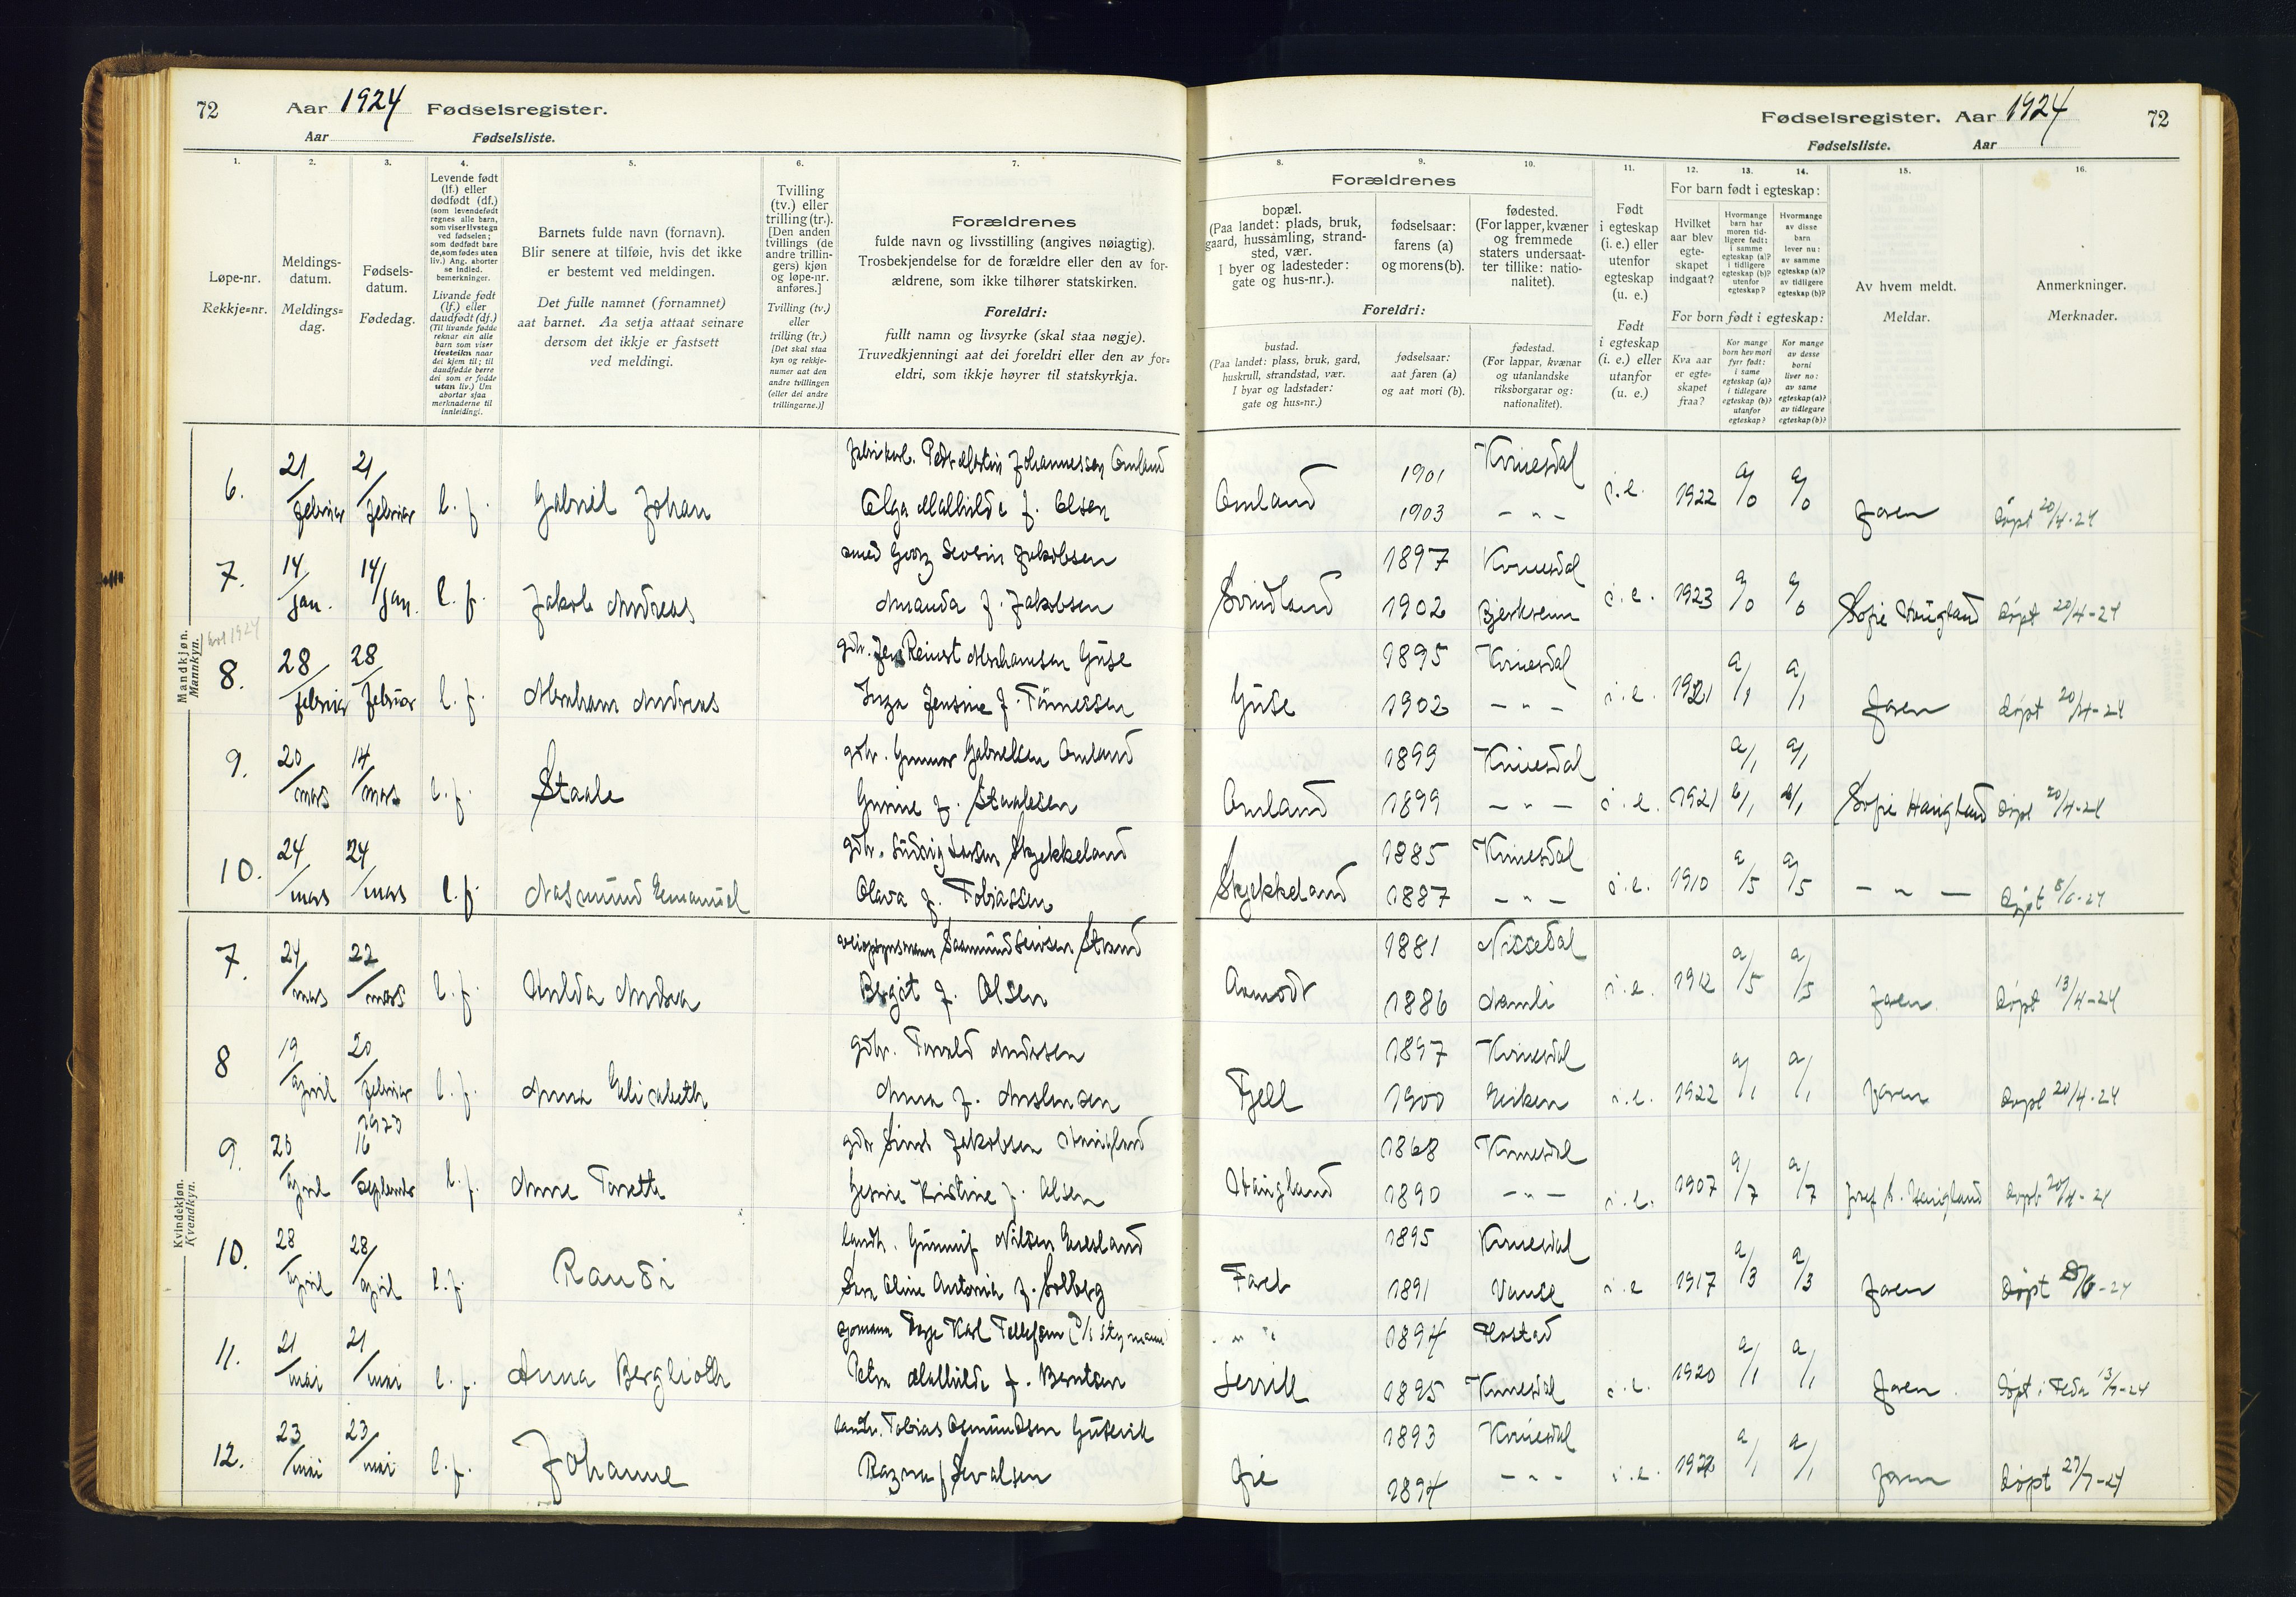 72 Aar 1924 Fødselsregister.
Aar Fødselsliste.
Fødselsregister. Aar 1924 72
Fødselsliste. Aar
1. 2. 3. 4. 5. 6. 7.
Løpe-nr.
Rekkje=nr.
Meldings-
datum.
Meldings=
dag.
Fødsels-
datum.
Fødedag.
Levende født
(lf.) eller
dødfødt (df.)
(som levendefødt
regnes alle barn,
som viser livstegn
ved fødselen;
som dødfødt bare
de, som fødes uten
liv.) Ang. aborter
se indled.
bemerkninger.
Livande født
(lf.) eller
daudfødt (df.)
(Til livande fødde
reknar ein alle
barn som viser
livsteikn naar
dei kjem til; til
daudfødde berre
dei som er fødde
utan liv.) Um
abortar sjaa
merknaderne til
innleidingi.
Barnets fulde navn (fornavn).
Blir senere at tilføie, hvis det ikke
er bestemt ved meldingen.
Det fulle namnet (fornamnet)
aat barnet. Aa setja attaat seinare
dersom det ikkje er fastsett
ved meldingi.
Tvilling
(tv.) eller
trilling (tr.).
[Den anden
tvillings (de
andre trillin-
gers) kjøn
og løpe-nr.
anføres.]
Tvilling (tv.)
eller
trilling (tr.)
[Det skal staa
kyn og rekkje-
numer aat den
andre tvillingen
(eller dei andre
trillingarne.)]
Forældrenes
fulde navn og livsstilling (angives nøiagtig).
Trosbekjendelse for de forældre eller den av for-
ældrene, som ikke tilhører statskirken.
Foreldri:
fullt namn og livsyrke (skal staa nøgje).
Truvedkjenningi aat dei foreldri eller den av for=
eldri, som ikkje høyrer til statskyrkja.
8. 9. 10. 11. 12. 13. 14. 15. 16.
Forældrenes
bopæl.
(Paa landet: plads, bruk,
gaard, hussamling, strand-
sted, vær.
I byer og ladesteder:
gate og hus-nr.).
fødselsaar:
farens (a)
og morens (b).
fødested.
(For lapper, kvæner
og fremmede
staters undersaat-
ter tillike: natio-
nalitet).
Foreldri:
bustad.
(Paa landet: plass, bruk, gard,
huskrull, strandstad, vær.
I byar og ladstader:
gate og hus=nr.)
fødselsaar:
aat faren (a)
og aat mori (b).
fødestad.
(For lappar, kvænar
og utanlandske
riksborgarar og:
nationalitet).
Født
i egteskap
(i. e.) eller
utenfor
egteskap
(u. e.)
Født
i egteskap
(i. e.) eller
utanfor
(u. e.)
For barn født i egteskap:
Hvilket
aar blev
egte-
skapet
indgaat?
Hvormange
barn har
moren tid-
ligere født:
i samme
egteskap (a)?
i tidligere
egteskap (b)?
utenfor
egteskap?
Hvormange
av disse
barn
lever nu:
av samme
egteskap (a)?
av tidligere
egteskap (b)?
For born født i egteskap:
Kva aar
er egte=
skapet
fraa?
Kor mange
born hev mori
fyrr født:
i same
egteskap (a)?
i tidlegare
egteskap (b)?
utanfor
egteskap?
Kor mange
av desse
borni
liver no:
av same
egteskap (a)?
av tidlegare
egteskap (b)?
Av hvem meldt.
Meldar.
Anmerkninger.
Merknader.
Mandkjøn.
Mannkyn.
6. 21/februar 21/februar l. f. Gabriel Johan Johannessen Omland
Olga Mathilde f. Olsen
Omland 1901 Kvinesdal i.e. 1922 a/0 a/0 Døpt 20/4-24
1903 - " -
7. 14/jan. 14/jan. l. f. Jakob Andreas smed Georg Severin Jakobsen
Amanda f. Jakobsen
Svindland 1897 Kvinesdal i.e. 1923 a/0 a/0 Sofie Haugland Døpt 20/4-24
1902 Bjerkreim
8. 28/februar 28/februar l. f. Abraham Andreas gdbr. Jens Reinert Abrahamsen Guse
Inga Jensine f. Tønnessen
Guse 1895 Kvinesdal i.e. 1921 a/1 a/1 Døpt 20/4-24
1902 - " -
9. 20/mars 14/mars l. f. Staale gdbr. Gunnar Gabrielsen Omland
Gurine f. Staalesen
Omland 1899 Kvinesdal i.e. 1921 a/1 b/1 a/1 b/1 Sofie Haugland Døpt 20/4-24
1899 - " -
10. 24/mars 24/mars l. f. Rasmund Emanuel gdbr. Ludvig Larsen Skjekkeland
Olava f. Tobiassen
Skjekkeland 1885 Kvinesdal i.e. 1910 a/5 a/5 - " - Døpt 8/6-24
1887 - " -
Kvindekjøn.
Kvendkyn.
7. 24/mars 22/mars l. f. Hulda Andrea Strand
Bergit f. Olsen
Aamodt 1881 Nissedal i.e. 1912 a/5 a/5 Døpt 13/4-24
1886 Aamli
8 19/april 20/februar l. f. Anna Elisabeth gdbr. Torvald Andersen
Anna f. Anstensen
Fjell 1897 Kvinesdal i.e. 1922 a/1 a/1 Døpt 20/4-24
1900 Eiken
9. 20/april 1923 16/september l. f. Anne Torette gdbr Jakobsen Haugland
Gesine Kristine f. Olsen
Haugland 1868 Kvinesdal i.e. 1907 a/7 a/7 Josef S. Haugland Døpt 20/4-24
1890 - " -
10. 28/april 28/april l. f. Randi landh. Gunnuf Nilsen Eiesland
Sara Oline Antonie f. Solberg
Faret 1895 Kvinesdal i.e 1917 a/3 a/3 Døpt
1891 Vanse
11. 21/mai 21/mai l. f. Anna Berglioth sjømann Terje Karl Tellefsen
Petra Mathilde f. Berntsen
Lervik 1894 i.e. 1920 a/1 a/1 Døpt i Feda 13/7-24
1895 Kvinesdal
12. 23/mai 23/mai l. f. Johanne landh. Tobias Osmundsen Gusevik
Ragna f Sevalsen
Øie 1893 Kvinesdal i.e. 1922 a/1 a/1 Døpt 27/7-24
1894 - " -